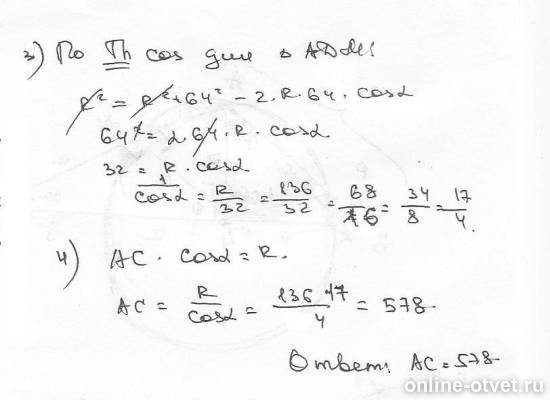 3) По Th cos для △ ADM:
R² = R² + 64² - 2·R·64·cosα
64² = 2·64·R·cosα
32 = R·cosα
1/cosα = R/32 = 136/32 = 68/16 = 34/8 = 17/4
4) AC · cosα = R.
AC = R/cosα = 136·17/4 = 578
Ответ: AC = 578
online-otvet.ru